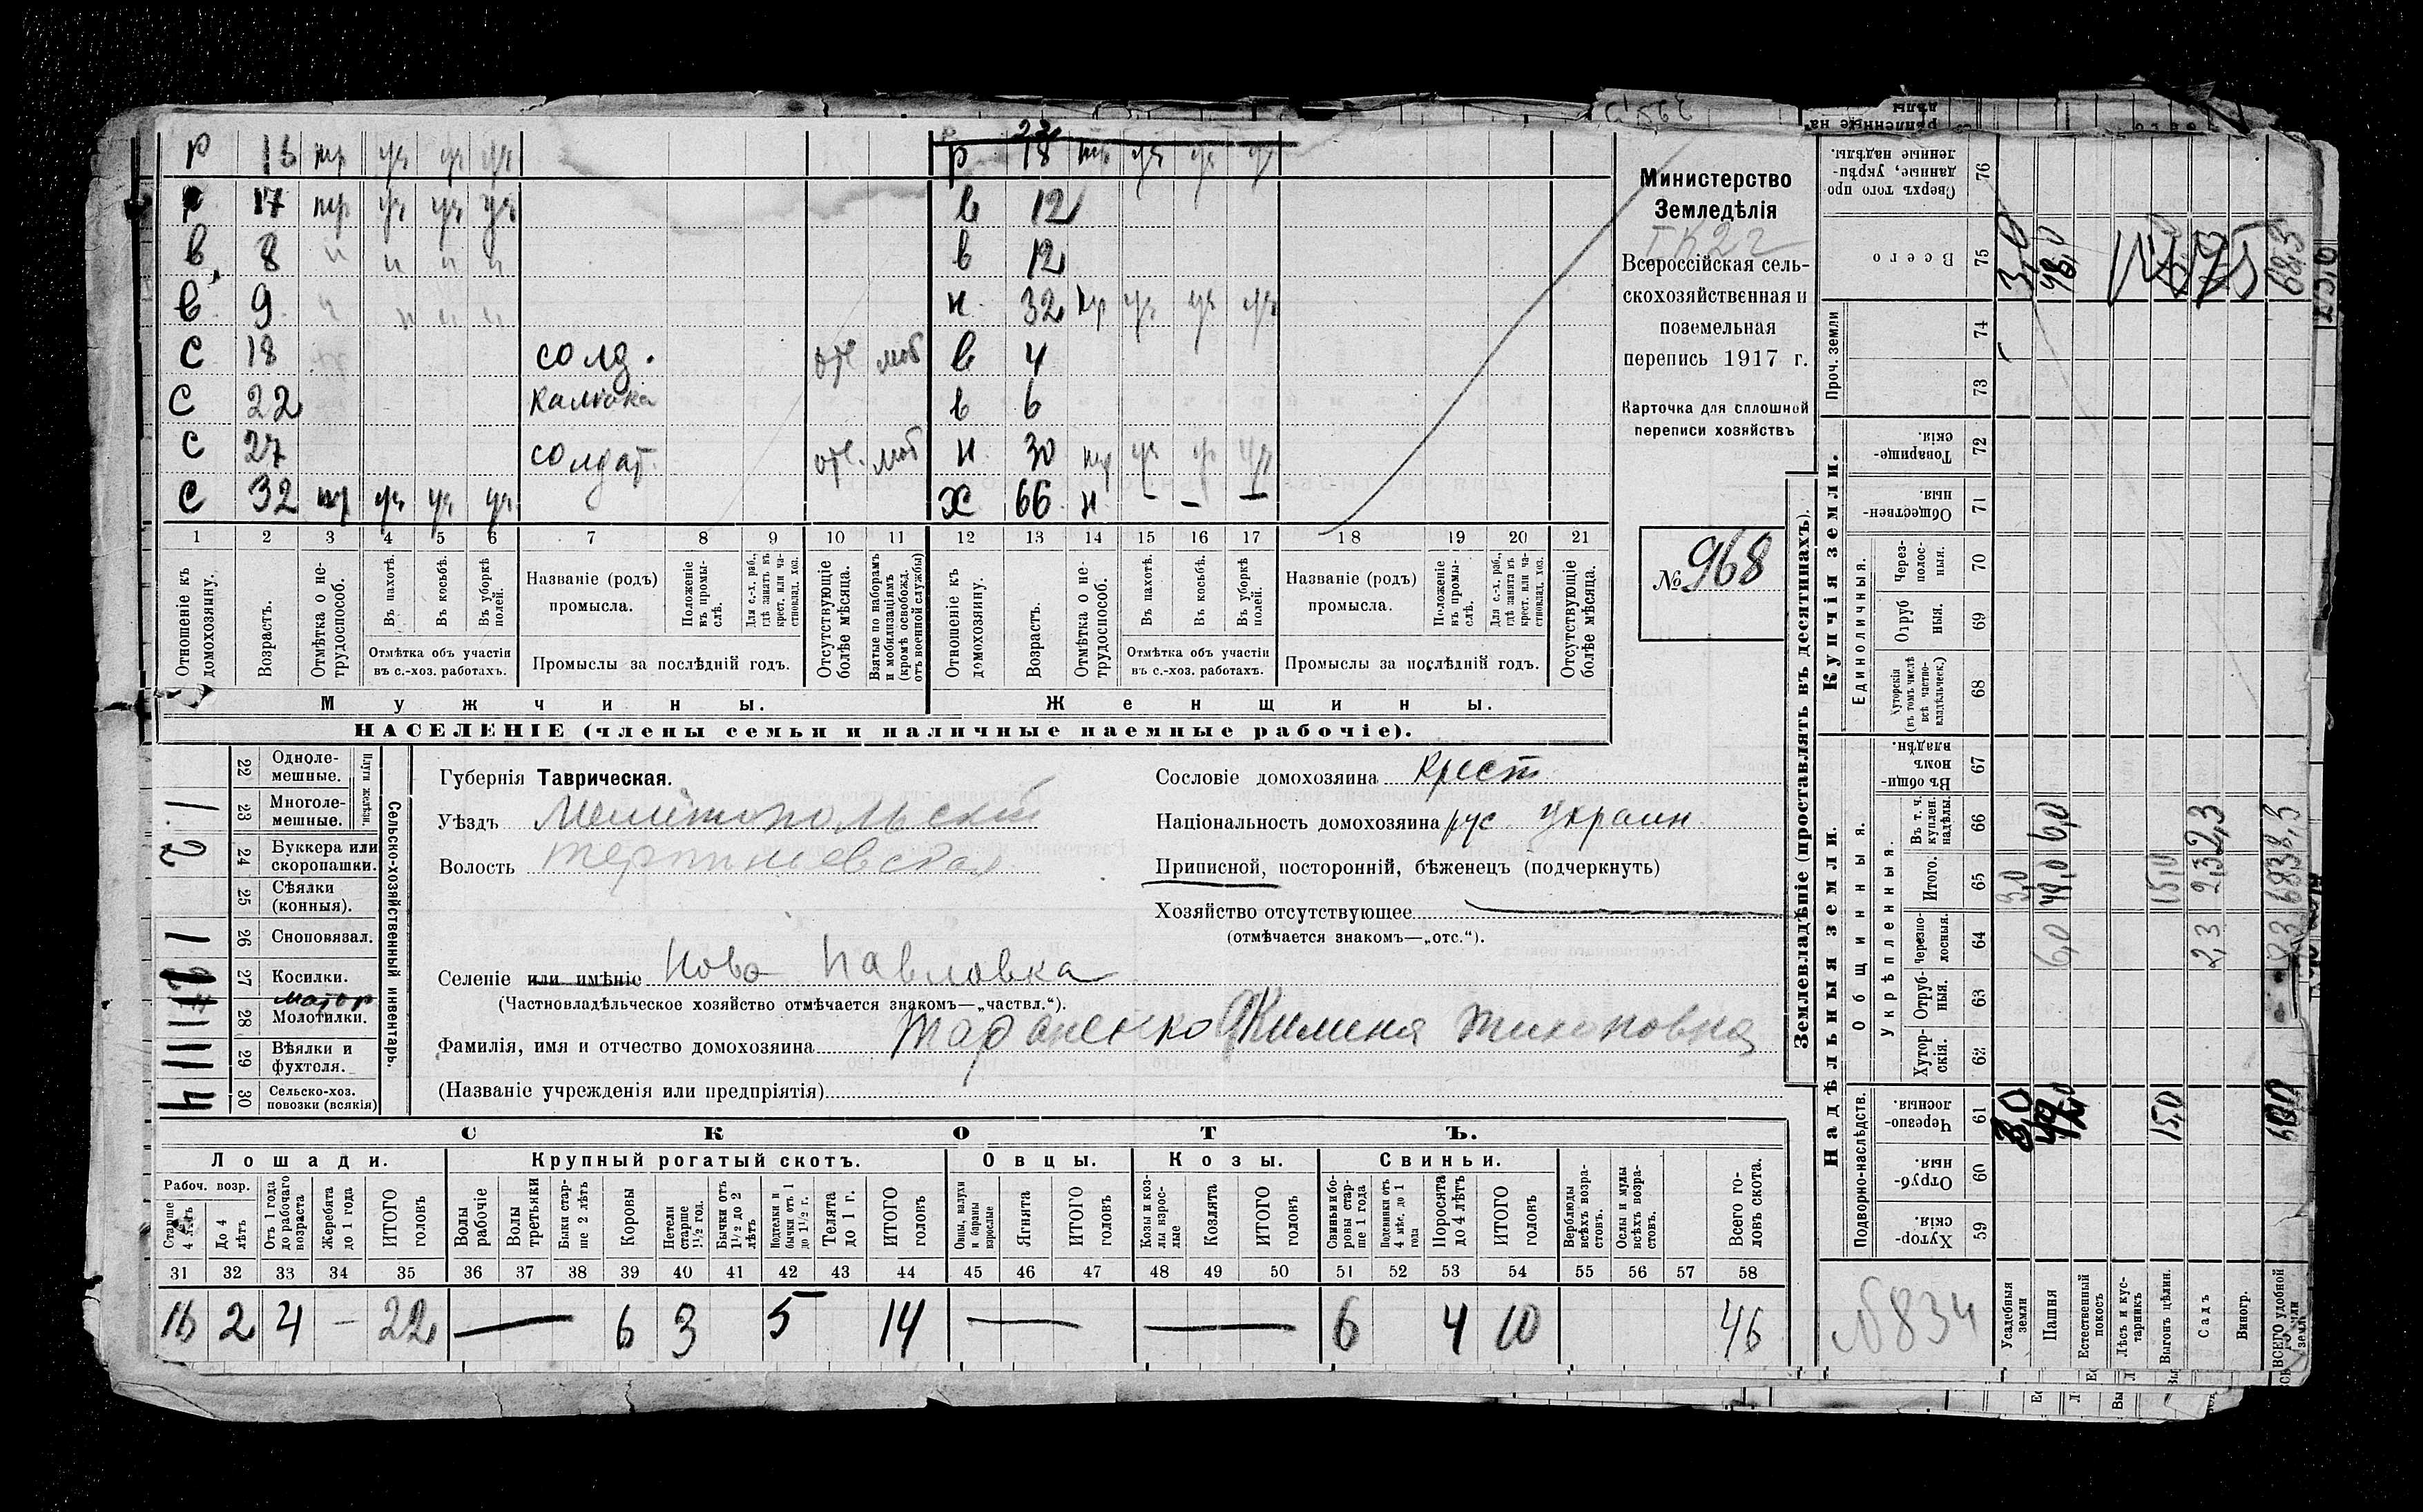 р 16 тр уч уч уч
р 17 тр уч уч уч
в 8 " " " "
в 9 " " " "
с 18 солд. отс моб
с 22 калѣка
с 27 солдат. отс. моб
с 32 тр уч уч уч
23
р 18 тр уч уч уч
в 12
в 12
н. 32 тр уч уч уч
в 4
в 6
н. 30 тр уч уч уч
х 66 н - - -
1 2 3 4 5 6 7 8 9 10 11 12 13 14 15 16 17 18 19 20 21
Отношеніе къ домохозяину.
Возрастъ.
Отмѣтка о не-трудоспособ.
Въ пахотѣ.
Въ косьбѣ.
Въ уборкѣ полей.
Отмѣтка объ участіи въ с.-хоз. работахъ.
Названіе (родъ) промысла.
Положеніе въ промы-слѣ.
Для с.-х. раб., гдѣ занятъ въ крест. или ча-стновлад. хоз.
Промыслы за послѣдній годъ.
Отсутствующіе болѣе мѣсяца.
Взятые по наборамъ и мобилизаціямъ (кромѣ освобожд. отъ военной службы)
Отношеніе къ домохозяину.
Возрастъ.
Отмѣтка о не-трудоспособ.
Въ пахотѣ.
Въ косьбѣ.
Въ уборкѣ полей.
Отмѣтка объ участіи въ с.-хоз. работахъ.
Названіе (родъ) промысла.
Положеніе въ промы-слѣ.
Для с.-х. раб., гдѣ занята въ крест. или ча-стновлад. хоз.
Промыслы за послѣдній годъ.
Отсутствующіе болѣе мѣсяца.
Мужчины.
Женщины.
НАСЕЛЕНІЕ (члены семьи и наличные наемные рабочіе).
Министерство
Земледѣлія
Всероссійская сель-
скохозяйственная и
поземельная
перепись 1917 г.
Карточка для сплошной
переписи хозяйствъ
№ 968
Сельско-хозяйственный инвентарь.
Плуги желѣзн.
22 Одноле-мешные.
1 23 Многоле-мешные.
2 24 Буккера или скоропашки.
25 Сѣялки (конныя).
1 26 Сноповязал.
27 Косилки.
матор
28 Молотилки.
29 Вѣялки и фухтеля.
4 30 Сельско-хоз. повозки (всякія)
Губернія Таврическая.
Уѣздъ Мелитопольскій
Волость Терпеніевская
Селеніе или имѣніе Ново Павловка
(Частновладѣльческое хозяйство отмѣчается знакомъ—„частвл.“).
Фамилія, имя и отчество домохозяина Тараненко Тихоновна
(Названіе учрежденія или предпріятія)
Сословіе домохозяина Крест
Національность домохозяина рус украин
Приписной, посторонній, бѣженецъ (подчеркнуть)
Хозяйство отсутствующее
(отмѣчается знакомъ—„отс.“).
СКОТЪ.
Лошади. Крупный рогатый скотъ. Овцы. Козы. Свиньи.
Рабоч. возр.
Старше 4 лѣтъ
До 4 лѣтъ
Отъ 1 года до рабочаго возраста
Жеребята до 1 года
ИТОГО головъ
Волы рабочіе
Волы третьяки
Быки стар-ше 2 лѣтъ
Коровы
Нетели старше 1½ год.
Бычки отъ 1½ до 2 лѣтъ
Подтелки и бычки отъ 1 до 1½ г.
Телята до 1 г.
ИТОГО головъ
Овцы, валухи и бараны взрослые
Ягнята
ИТОГО головъ
Козы и коз-лы взрос-лые
Козлята
ИТОГО головъ
Свиньи и бо-ровы стар-ше 1 года
Подсвинки отъ 4 мѣс. до 1 года
Поросята до 4 лѣтъ
ИТОГО головъ
Верблюды всѣхъ возра-стовъ.
Ослы и мулы всѣхъ возра-стовъ.
Всего го-ловъ скота.
31 32 33 34 35 36 37 38 39 40 41 42 43 44 45 46 47 48 49 50 51 52 53 54 55 56 57 58
16 2 4 — 22 — 6 3 5 14 — — 6 4 10 46
Землевладѣніе (проставлять въ десятинахъ).
Купчія земли.
Надѣльныя земли.
Сверхъ того про-данные, укрѣп-ленные надѣлы. 76
Всего 75
Проч. земли 74 73
Товарище-скія. 72
Обществен-ныя. 71
Единоличныя.
Через-полос-ныя. 70
Отруб ныя. 69
Хуторскія (въ томъ числѣ всѣ частно-владѣльческ.) 68
Общинныя.
Въ общи-номъ владѣн. 67
Укрѣпленныя.
Въ т. ч. куплен. надѣлы. 66
Итого. 65
Черезпо-лосныя. 64
Отруб-ныя. 63
Хутор-скія. 62
Подворно-наслѣдств.
Черезпо-лосныя. 61
Отруб-ныя. 60
Хутор-скія. 59
№834
Усадебныя земли 3,0 3,0 3,0
Пашня 6,0 6,0 48,0
Естественный покосъ
Лѣсъ и кус-тарникъ
Выгонъ цѣлин. 15,0 15,0
Садъ 2,3 2,3 2,3
Виногр.
ВСЕГО удобной земли 68,3 68,3